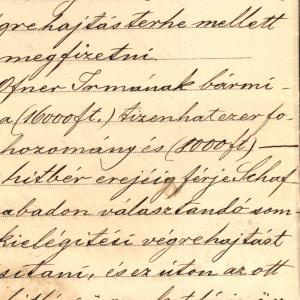 végrehajtás terhe mellett
megfizetni.
Ofner Irmának bármi-
a (16000 ft.) tizenhatezer fo-
hozomány és (8000 ft) —
hitbér erejéig férje Schaf
abadon választandó som
kielégítési végrehajtást
sitani, és ez úton az ott